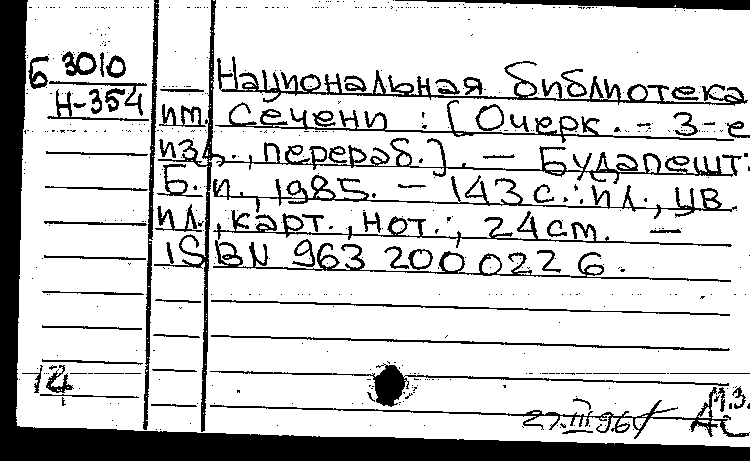 Б 3010
Н-354
Национальная библиотека
им. Сечени : [Очерк. - 3-е
изд., перераб.]. — Будапешт:
Б. и., 1985. — 143 с.: ил., цв.
ил., карт., нот.; 24 см. —
ISBN 963 200 022 6.
14
27.III 96
М.З.